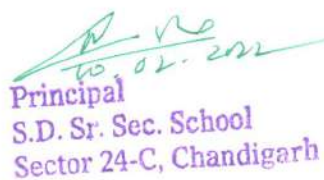 10.02.2022
Principal
S.D. Sr. Sec. School
Sector 24-C, Chandigarh